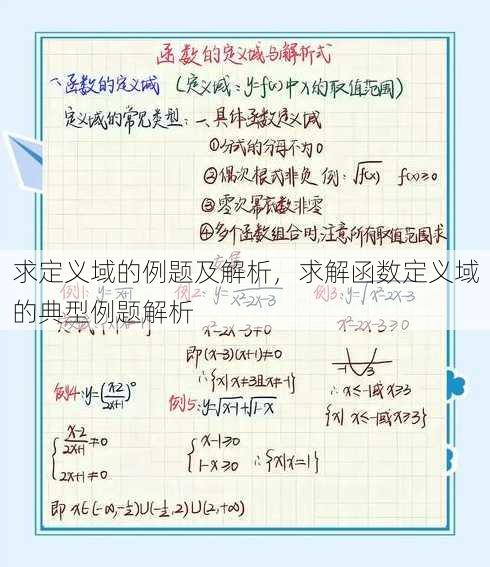 函数的定义域与解析式
一、函数的定义域 (定义域：y=f(x)中x的取值范围)
定义域的常见类型：一、具体函数定义域
①分式的分母不为0
②偶次根式非负 例：√f(x) f(x)≥0
③零次幂底数非零
④多个函数组合时,注意所有取值范围求
求定义域的例题及解析，求解函数定义域
的典型例题解析
例1: y=
例2: y=
x²-2x-3
例3: y=√x²-2x-3
x²-2x-3≠0
x²-2x-3≥0
即(x-3)(x+1)≠0
∴{x|x≠3且x≠-1}
-1 3
∴x≤-1或x≥3
{x|x≤-1或x≥3}
例4: y=(x-2/2x+1)⁰
x-2/2x+1≠0
2x+1≠0
即x∈(-∞,-½)∪(-½,2)∪(2,+∞)
例5: y=√x-1+√1-x
x-1≥0
1-x≥0 ∴{x|x=1}